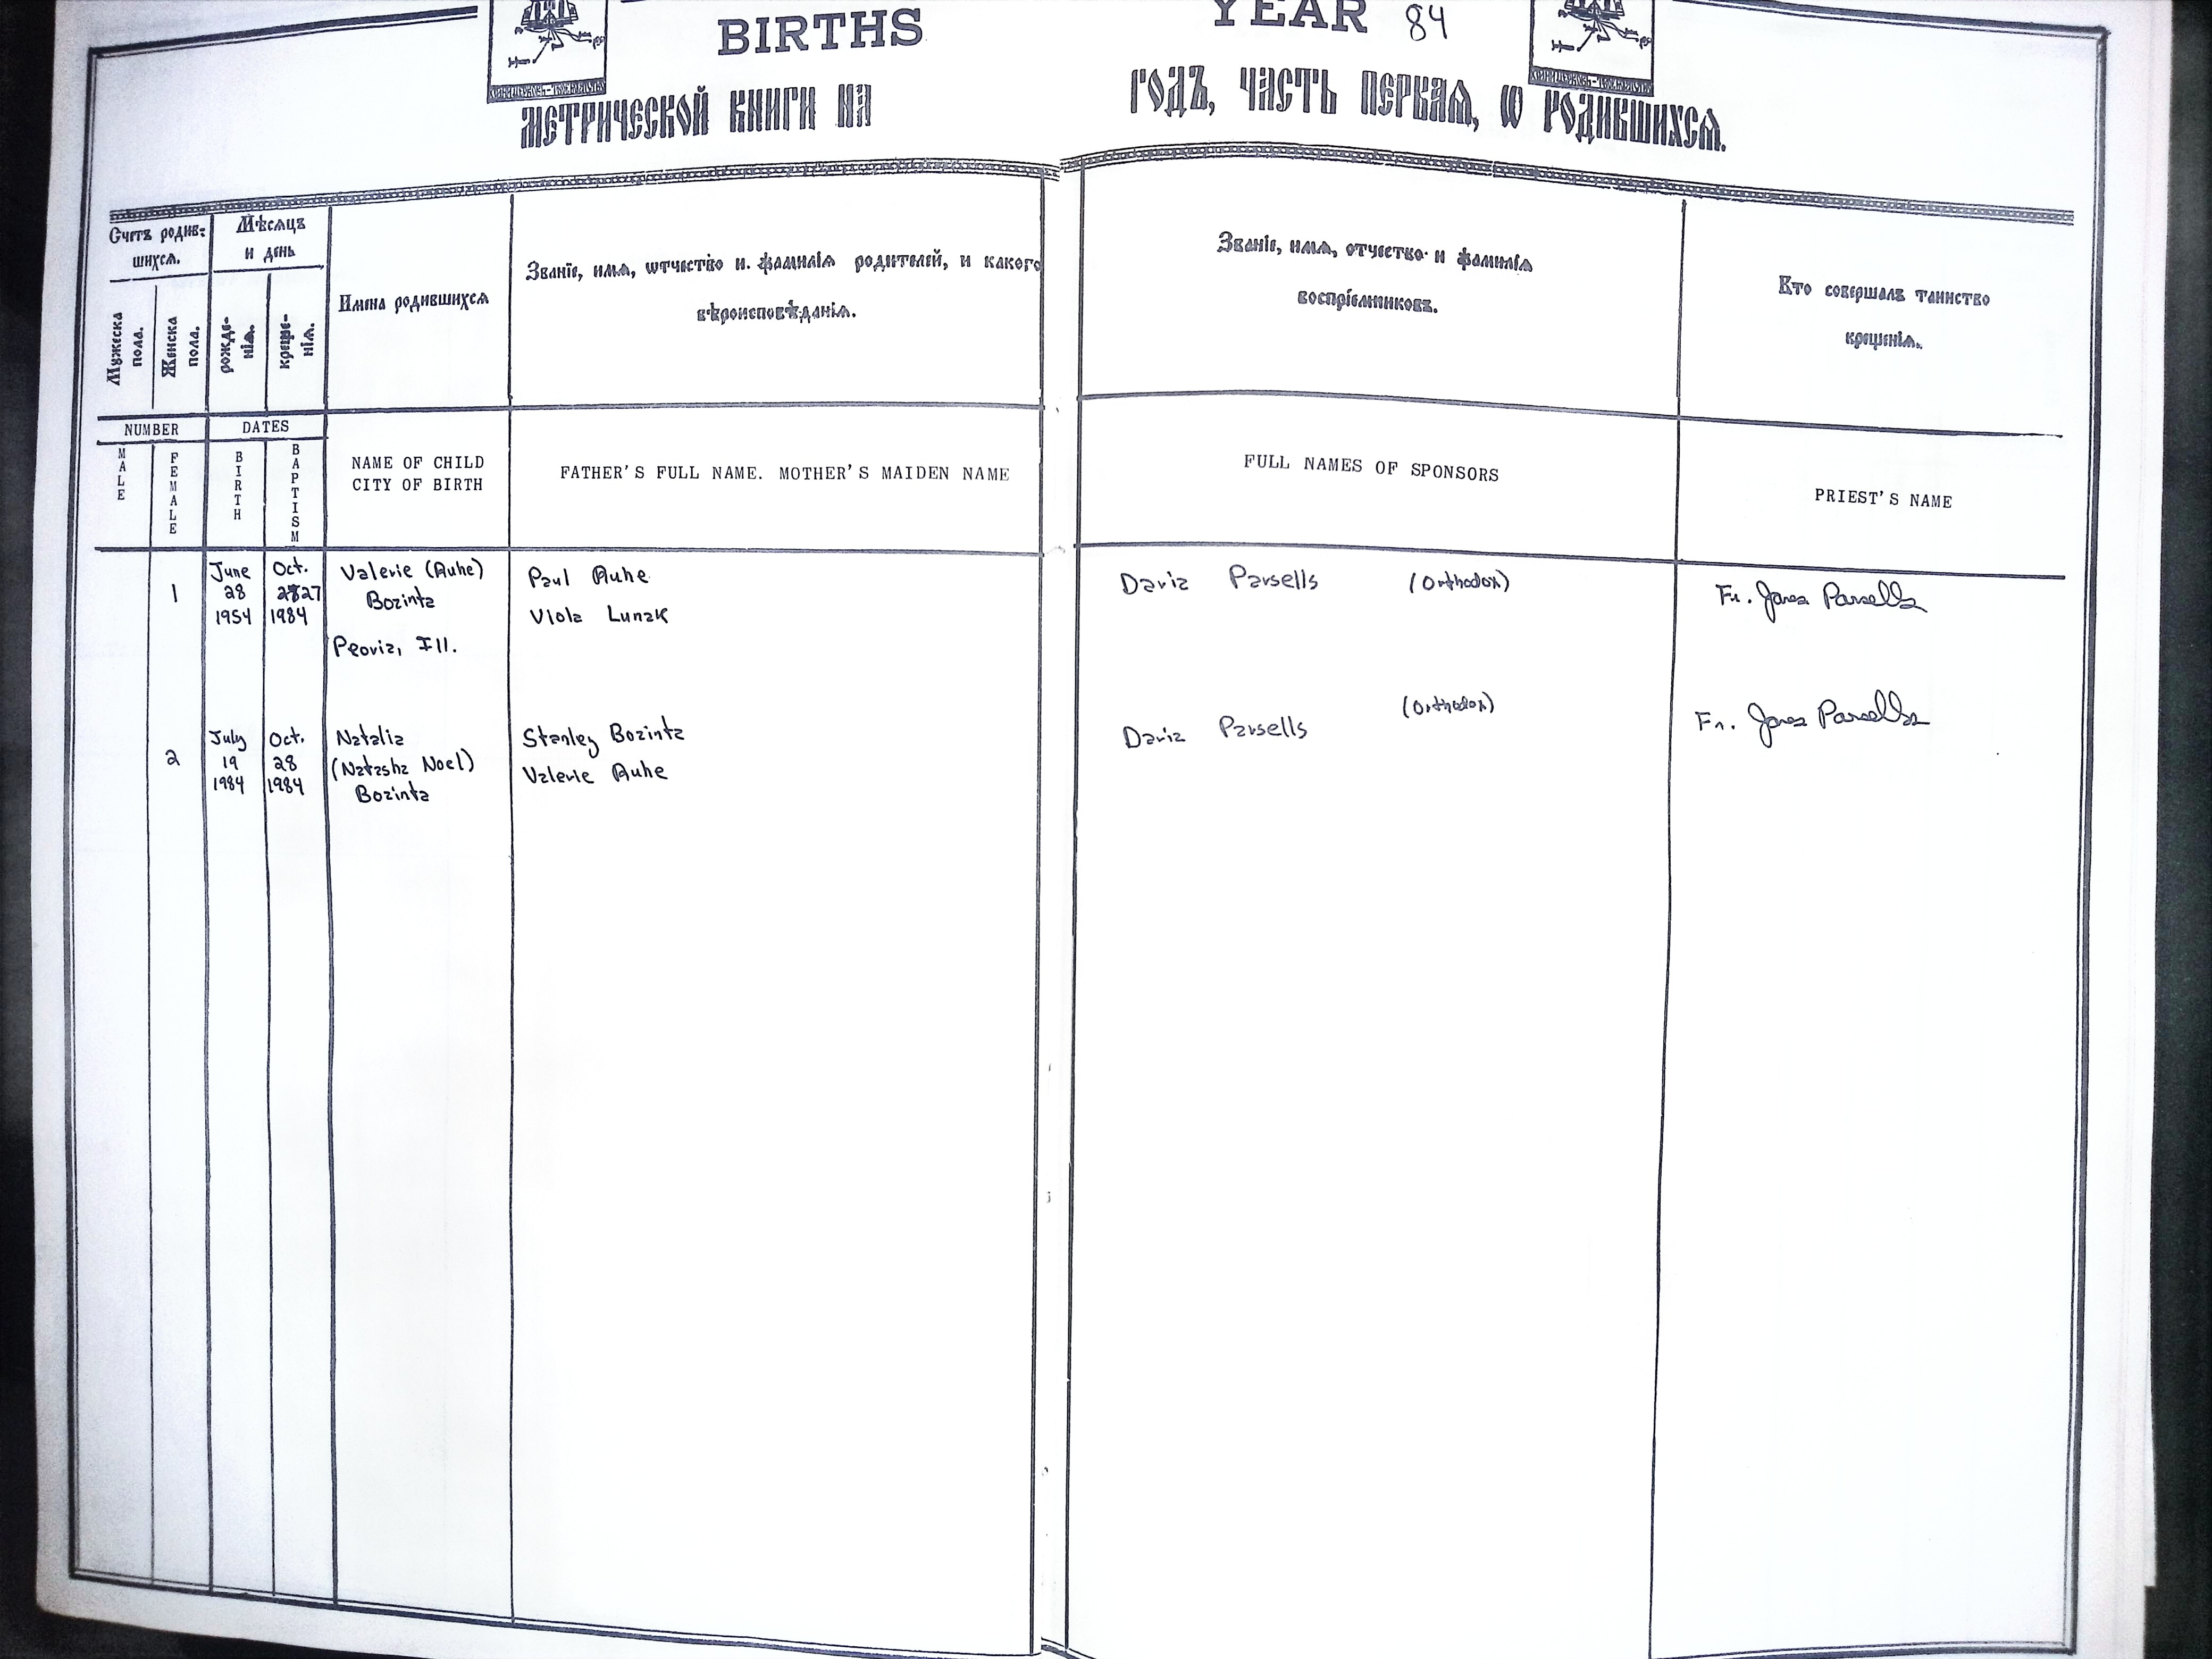 BIRTHS YEAR 84
МЕТРИЧЕСКОЙ КНИГИ НА ГОДЪ, ЧАСТЬ ПЕРВАѦ, Ѡ РОДИВШИХСѦ.
Счетъ родив-
шихсѧ.
Мѣсѧцъ
и день
Мужеска
пола.
Женска
пола.
рожде-
нїѧ.
креще-
нїѧ.
Имена родившихсѧ
Званїе, имѧ, ѡтчество и. фамилїѧ родителей, и какого
вѣроисповѣданїѧ.
Званїе, имѧ, отчество и фамилїѧ
воспрїемниковъ.
Кто совершалъ таинство
крещенїѧ.
NUMBER
DATES
MALE
FEMALE
BIRTH
BAPTISM
NAME OF CHILD
CITY OF BIRTH
FATHER'S FULL NAME. MOTHER'S MAIDEN NAME
FULL NAMES OF SPONSORS
PRIEST'S NAME
1
June
28
1954
Oct.
27
1984
Valerie (Auhe)
Bozinta
Peoria, Ill.
Paul Auhe
Viola Lunak
Daria Parsells (Orthodox)
Fr. James Parsells
2
July
19
1984
Oct.
28
1984
Natalia
(Natasha Noel)
Bozinta
Stanley Bozinta
Valerie Auhe
Daria Parsells (Orthodox)
Fr. James Parsells